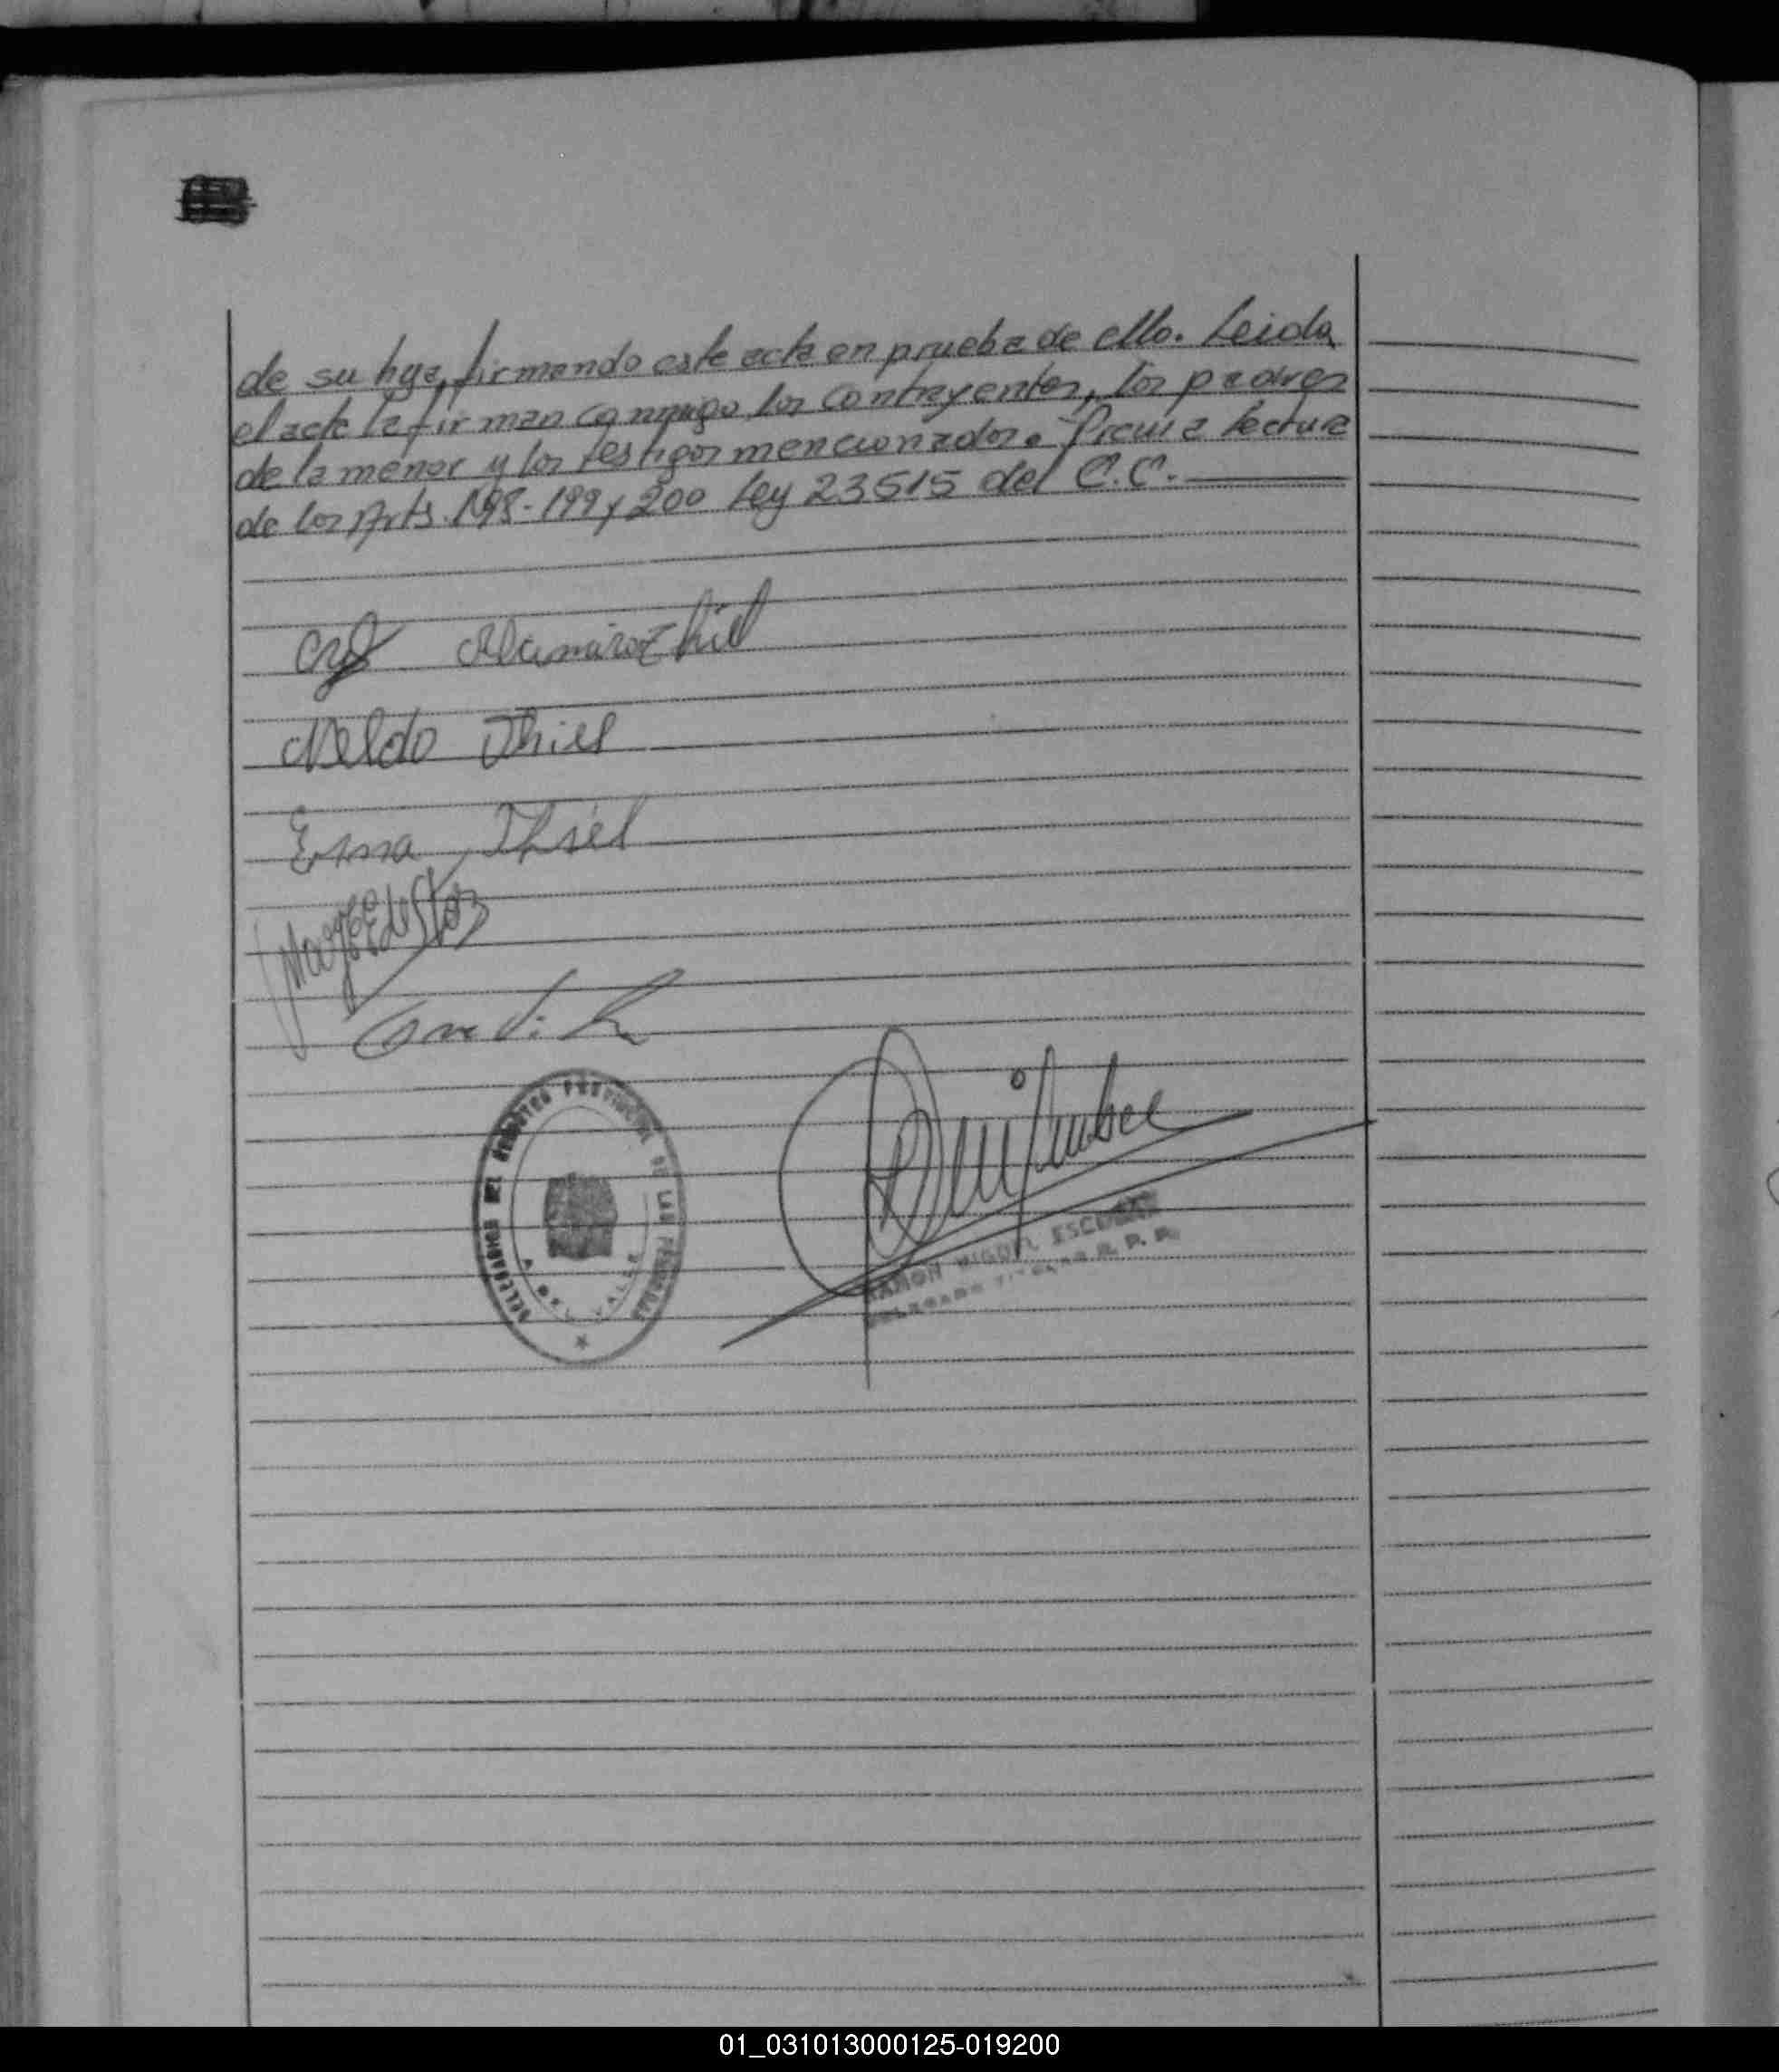 de su hija, firmando este acta en prueba de ello. Leida
el acta la firman conmigo, los contrayentes, los padres
de la menor y los testigos mencionados. Previa lectura
de los Arts. 198-199 y 200 Ley 23515 del C.C.
Thiel
Neldo Thiel
Erna Thiel
DELEGACION DEL REGISTRO PROVINCIAL DE LAS PERSONAS
DEL VALLE
RAMON MIGUEL ESCOBAR
DELEGADO TITULAR R. P. P.
01_031013000125-019200